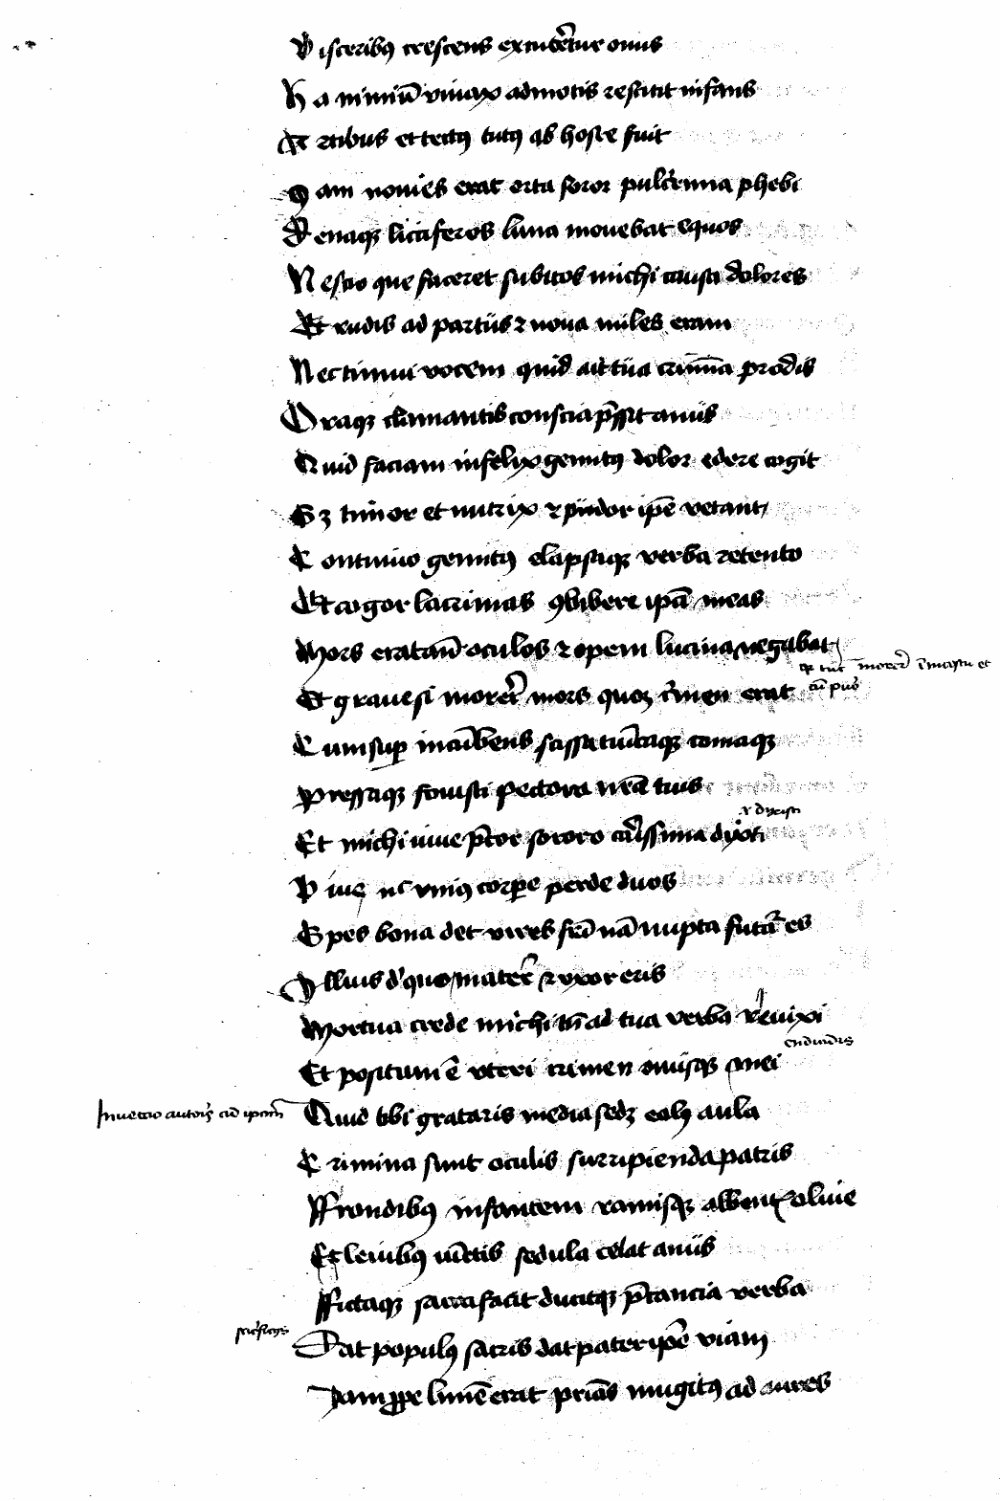 Visceribus crescens excuteretur onus
Ha nimium vivax admotis restitit infans
Artibus et tectus tutus ab hoste fuit
Jam novies erat orta soror pulcerrima phebi
Denaque luciferos luna movebat equos
Nescio que faceret subitos michi causa dolores
Et rudis ad partus et nova miles eram
Nec tinui vocem quid ait tua crimina prodis
Oraque clamantis conscia pressit anus
Quid faciam infelix gemitus dolor edere cogit
Sed timor et nutrix et pudor ipse vetant
Contineo gemitus elapsaque verba retento
Et cogor lacrimas conbibere ipsa meas
Mors erat ante oculos et opem lucina negabat
et tunc morerer
Et grave si morerer mors quoque crimen erat
Cum super incumbens scissa tunicaque comaque
Pressaque fovisti pectora nostra tuis
Et michi vive soror soror o carissima dixti
Vive nec unius corpore perde duos
Spes bona det vires fratri nam nupta futura es
Illius de quo mater et uxor eris
Mortua crede michi tamen ad tua verba revixi
Et positum est uteri crimen onusque mei
Quid tibi grataris media sedet eolus aula
Crimina sunt oculis surripienda patris
Frondibus infantem ramisque albentis olive
Et levibus vittis sedula celat anus
Fictaque sacra facit dicitque precancia verba
Dat populus sacris dat pater ipse viam
Jam prope limen erat patrias mugitus ad aures